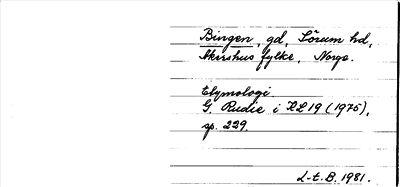 Bingen, gd, Sörum hd,
Akershus fylke, Norge.
Etymologi
G. Rudie i KL 19 (1975),
sp. 229.
L-t. B. 1981.